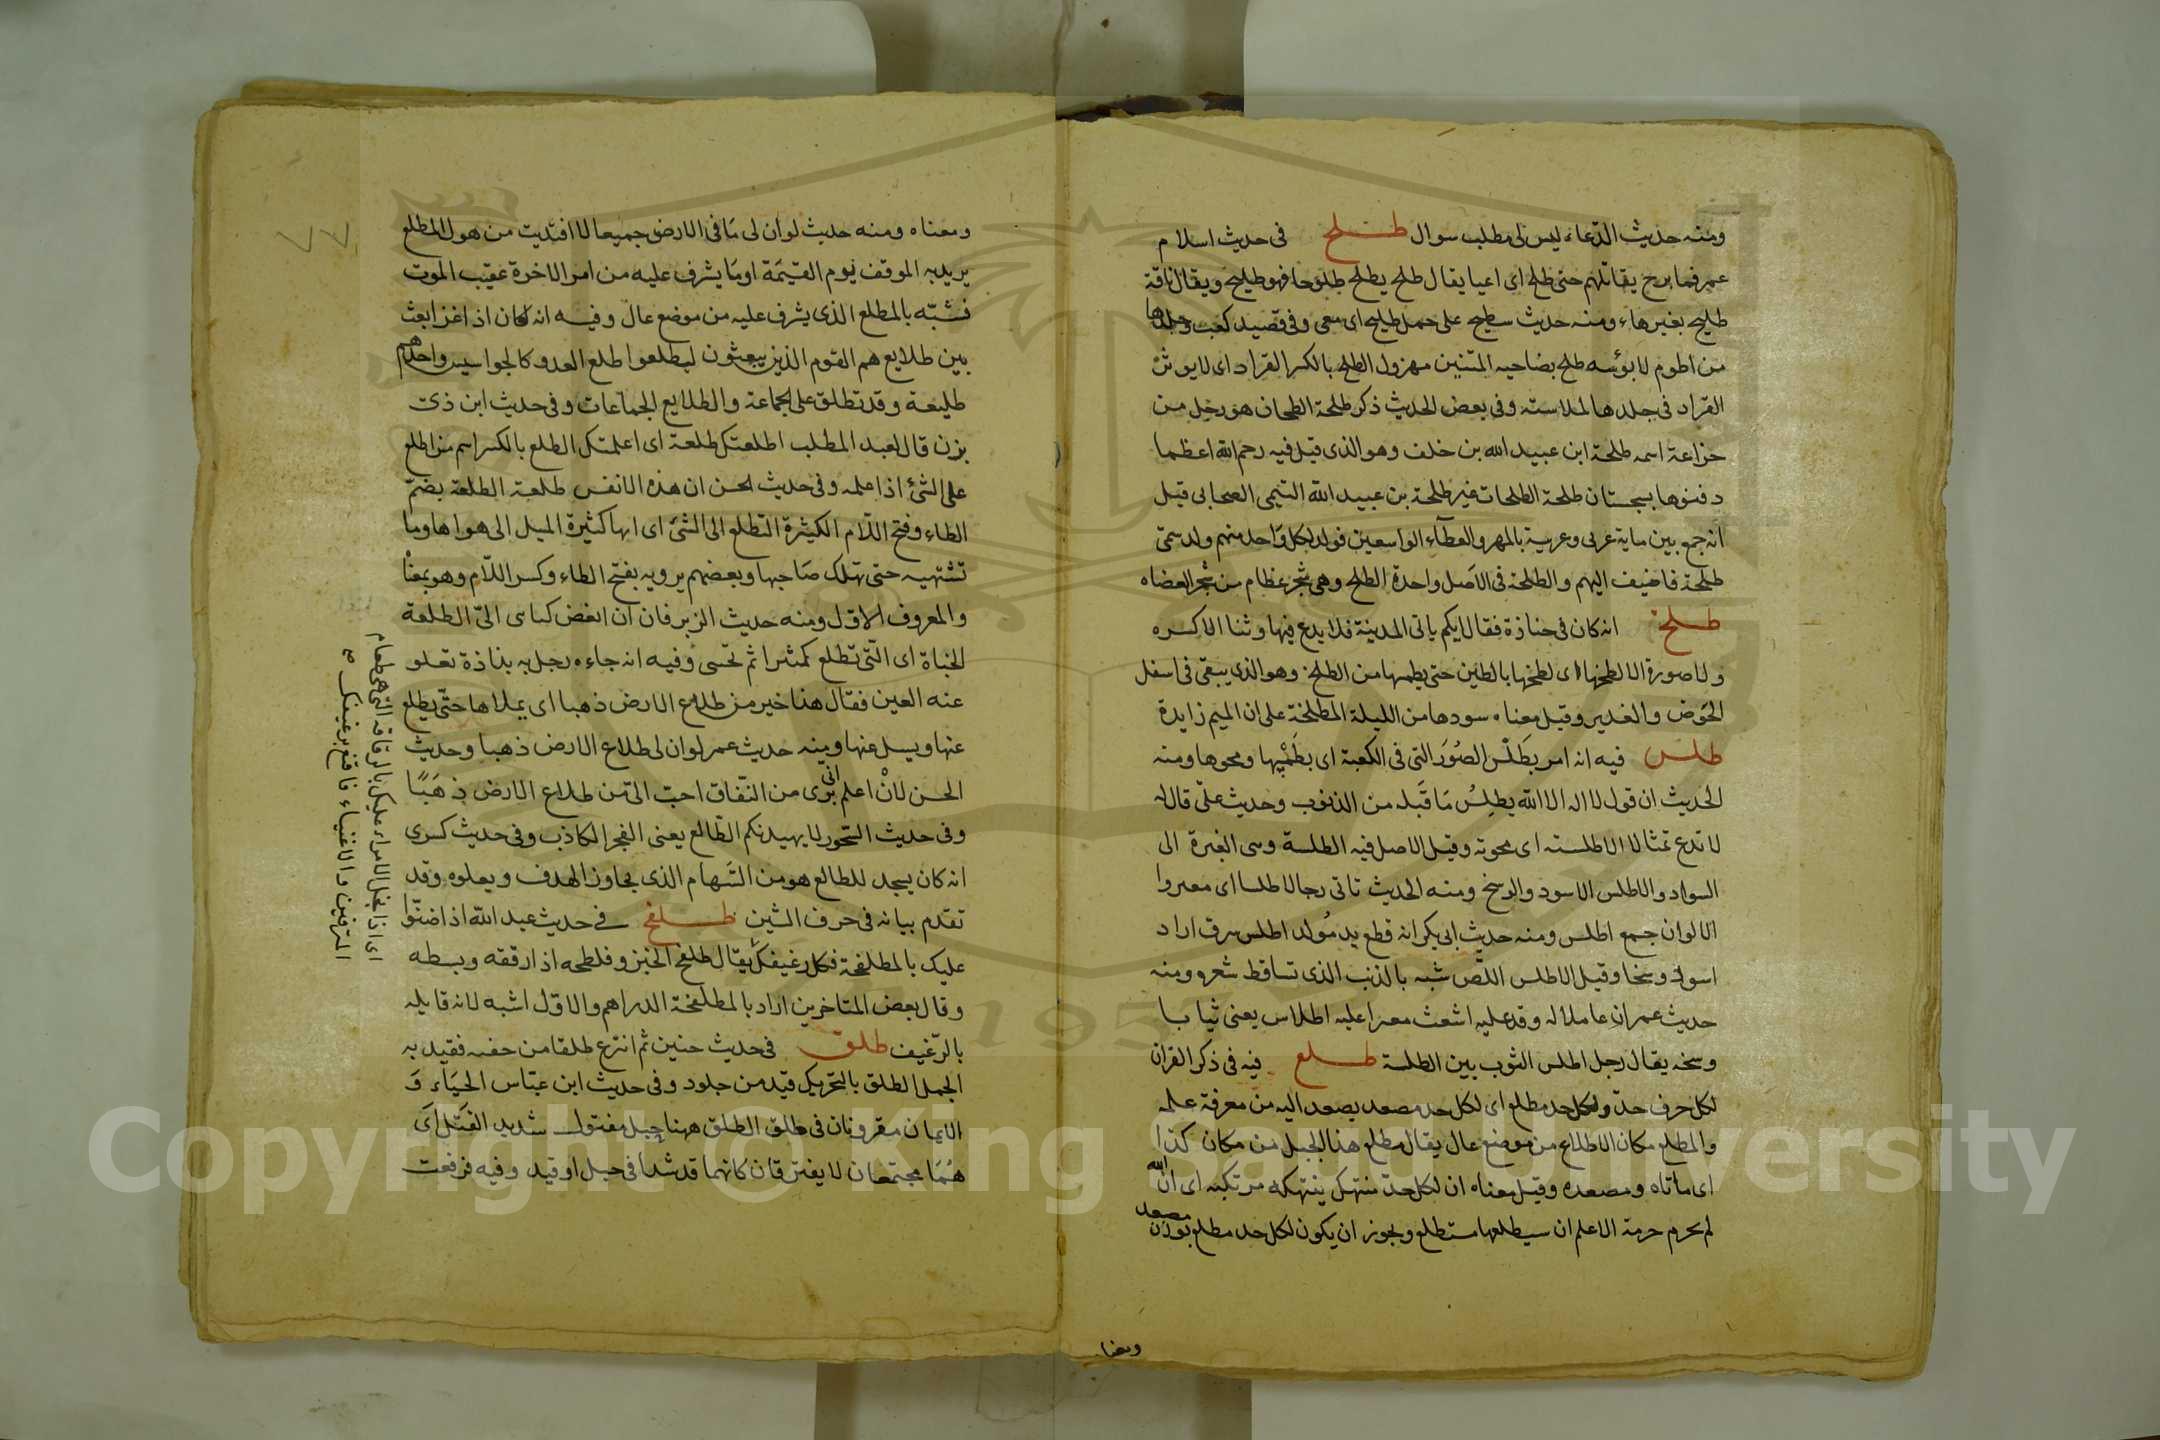 ومنه حديث الدعاء ليس لى مطلب سواك طلح فى حديث اسلام
عمر فما برح يقاتلهم حتى طلح اى اعيا يقال طلح يطلح طلوحا فهو طليح ويقال ناقة
طليح بغير هاء ومنه حديث سطيح على جمل طليح اى معى وفى قصيد كعب وجلدها
من اطوم لا يؤيسه طلح بضاحية المتنين مهزول الطلح بالكسر القراد اى لا يوثر
القراد فى جلدها لملاسته وفى بعض الحديث ذكر طلحة الطلحات هو رجل من
خزاعة اسمه طلحة ابن عبيد الله بن خلف وهو الذى قيل فيه رحم الله اعظما
دفنوها بسجستان طلحة الطلحات غير طلحة بن عبيد الله التيمى الصحابى قيل
انه جمع بين ماية عربى وعربية بالمهر والعطاء الواسعين فولد لكل واحد منهم ولد سمى
طلحة فاضيف اليهم والطلحة فى الاصل واحدة الطلح وهى شجر عظام من شجر العضاه
طلخ انه كان فى جنازة فقال ايكم ياتى المدينة فلا يدع فيها وثنا الا كسره
ولا صورة الا لطخها اى لطخها بالطين حتى يطمسها من الطلخ وهو الذى يبقى فى اسفل
الحوض والغدير وقيل معناه سودها من الليلة المطلخة على ان الميم زايدة
طلس فيه انه امر بطلس الصور التى فى الكعبة اى بطمسها ومحوها ومنه
الحديث ان قول لا اله الا الله يطلس ما قبله من الذنوب وحديث على قال له
لا تدع تمثالا الا طلسته اى محوته وقيل الاصل فيه الطلسة وهى الغبرة الى
السواد والاطلس الاسود والوسخ ومنه الحديث تاتى رجالا طلسا اى مغبروا
الالوان جمع اطلس ومنه حديث ابى بكر انه قطع يد مولد اطلس سرق اراد
اسود وسخا وقيل الاطلس اللص شبه بالذئب الذى تساقط شعره ومنه
حديث عمر ان عاملا له وفد عليه اشعث مغبرا عليه اطلاس يعنى ثيابا
وسخه يقال رجل اطلس الثوب بين الطلسة طلع فيه فى ذكر القران
لكل حرف حد ولكل حد مطلع اى لكل حد مصعد يصعد اليه من معرفة علمه
والمطلع مكان الاطلاع من موضع عال يقال مطلع هذا الجبل من مكان كذا
اى ماتاه ومصعده وقيل معناه ان لكل حد منتهكا ينتهكه مرتكبه اى ان الله
لم يحرم حرمة الا علم ان سيطلعها مستطلع ويجوز ان يكون لكل حد مطلع بوزن مصعد
ومعناه
ومعناه ومنه حديث لو ان لى ما فى الارض جميعا لافتديت من هول المطلع
يريد به الموقف يوم القيمة او ما يشرف عليه من امر الاخرة عقيب الموت
فشبه بالمطلع الذى يشرف عليه من موضع عال وفيه انه كان اذا غزا بعث
بين طلايع هم القوم الذين يبعثون ليطلعوا طلع العدو كالجواسيس واحدهم
طليعة وقد تطلق على الجماعة والطلايع الجماعات وفى حديث ابن ذى
يزن قال لعبد المطلب اطلعتك طلعة اى اعلمتك الطلع بالكسر اسم من اطلع
على الشئ اذا علمه وفى حديث الحسن ان هذه الانفس طلعة الطلعة بضم
الطاء وفتح اللام الكثيرة التطلع الى الشئ اى انها كثيرة الميل الى هواها وما
تشتهيه حتى تهلك صاحبها وبعضهم يرويه بفتح الطاء وكسر اللام وهو بمعناه
والمعروف الاول ومنه حديث الزبرقان ان ابغض كناىنى الى الطلعة
الخباة اى التى تطلع كثيرا ثم تختبى وفيه انه جاءه رجل به بذاذة تعلو
عنه العين فقال هذا خير من طلاع الارض ذهبا اى يملاها حتى يطلع
عنها ويسيل عنها ومنه حديث عمر لو ان لى طلاع الارض ذهبا وحديث
الحسن لان اعلم انى برى من النفاق احب الى من طلاع الارض ذهبا
وفى حديث السحور لا يهيدنكم الطالع يعنى الفجر الكاذب وفى حديث كسرى
انه كان يسجد للطالع هو من السهام الذى يجاوز الهدف ويعلوه وقد
تقدم بيانه فى حرف الشين طلفح فى حديث عبد الله اذا ضنوا
عليك بالمطلفحة فكل رغيفك يقال طلفح الخبز وفلطحه اذا رققه وبسطه
وقال بعض المتاخرين اراد بالمطلفحة الدراهم والاول اشبه لانه قابله
بالرغيف طلق فى حديث حنين ثم انتزع طلقا من حقبه فقيد به
الجمل الطلق بالتحريك قيد من جلود وفى حديث ابن عباس الحياء و
الايمان مقرونان فى طلق الطلق ههنا حبل مفتول شديد الفتل اى
هما مجتمعان لا يفترقان كانهما قد شدا فى حبل او قيد وفيه فرفعت
اى اذا بخل الامراء عليك بالرقاقة التى هى طعام
المترفين والاغنياء فاقنع برغيفك
٧٣
Copyright © King Saud University
1957